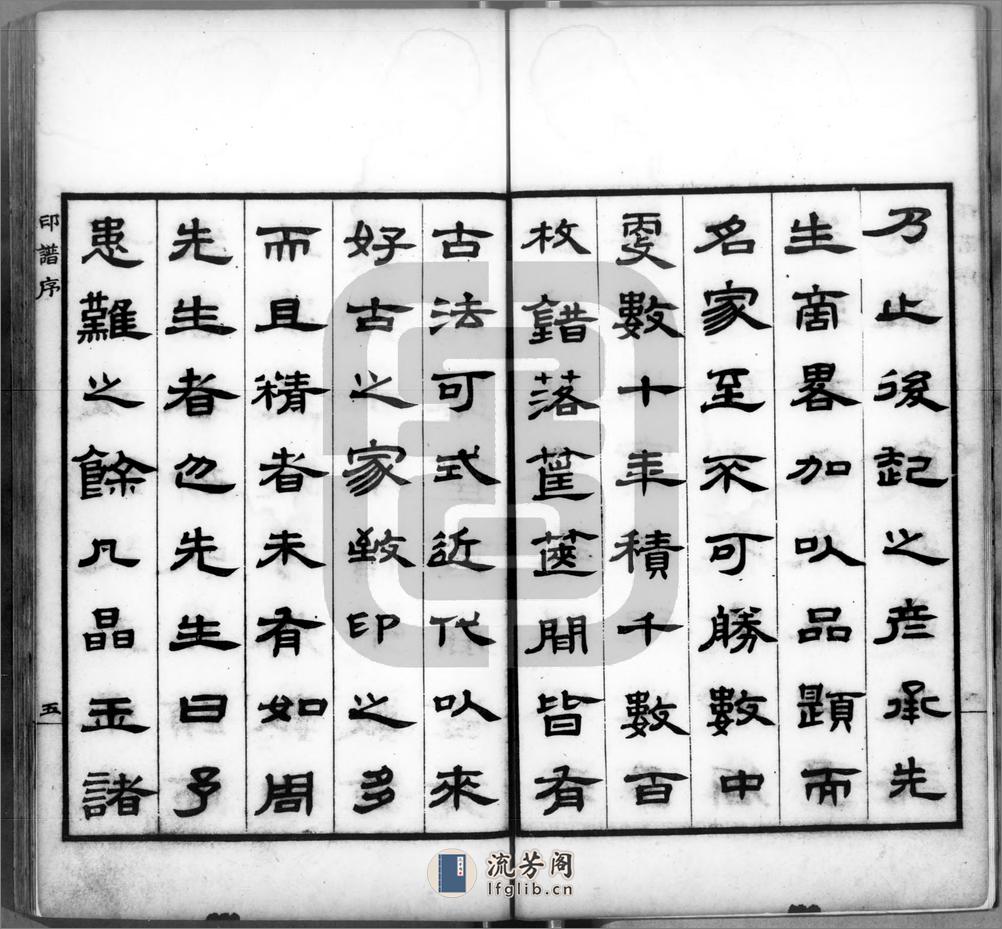 乃止後起之彦承先
生商畧加以品題而
名家至不可勝數中
更數十年積千數百
枚錯落筐篋間皆有
古法可式近代以來
好古之家致印之多
而且精者未有如周
先生者也先生曰予
患難之餘凡晶玉諸
印譜序
五
流芳阁
lfglib.cn